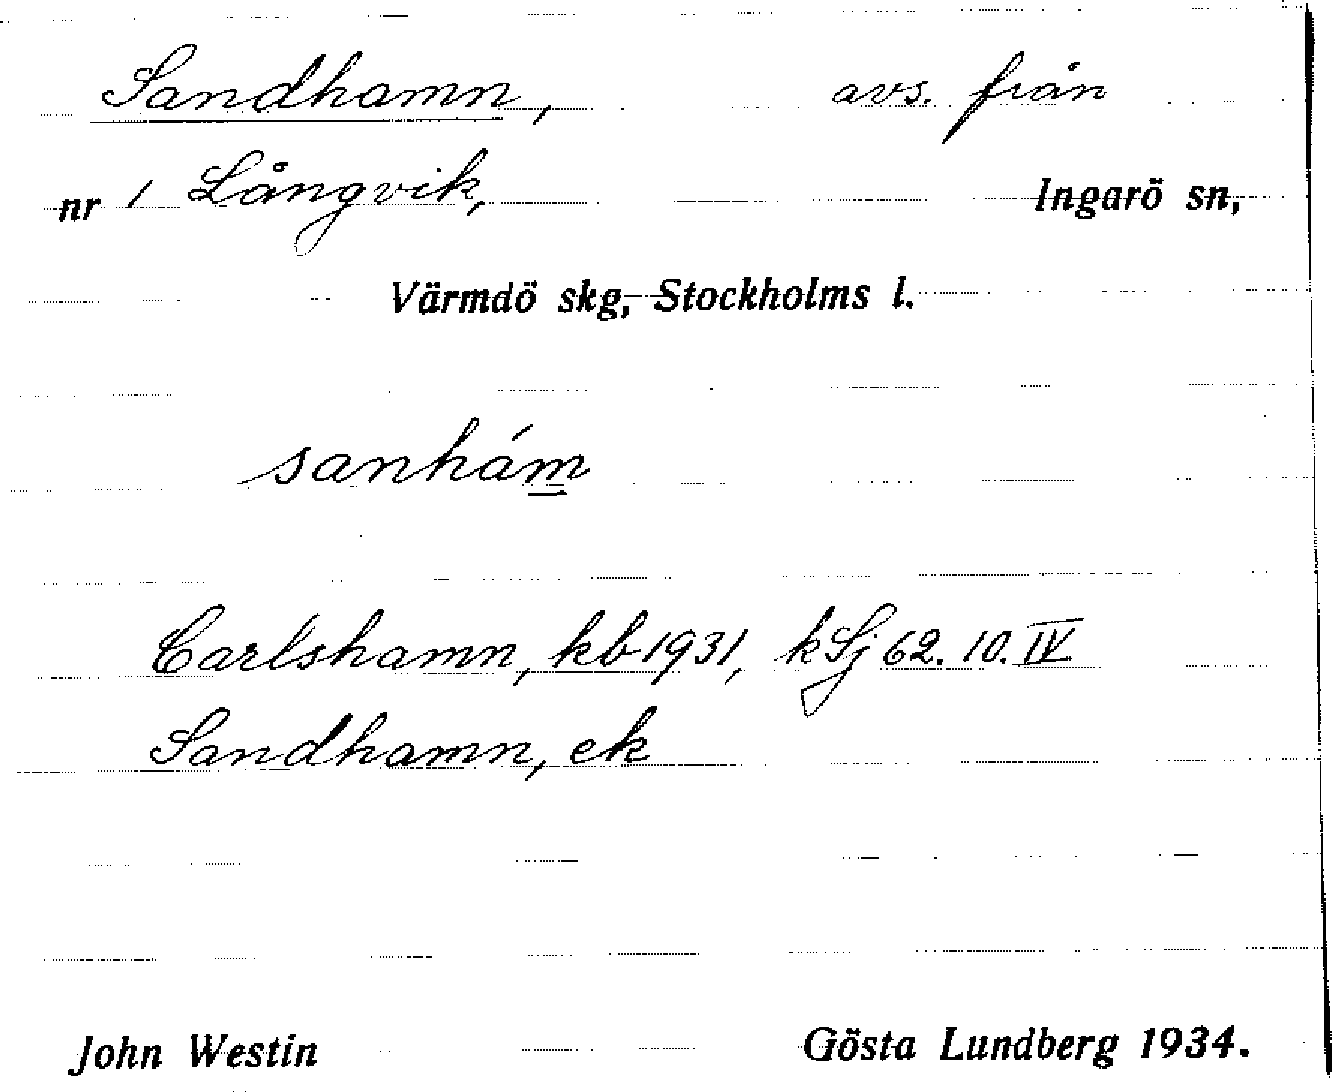 Sandhamn, avs. från
nr 1 Långvik, Ingarö sn,
Värmdö skg, Stockholms l.
sanhám̲
Carlshamn, kb 1931, kSj 62. 10. IV
Sandhamn, ek
John Westin Gösta Lundberg 1934.